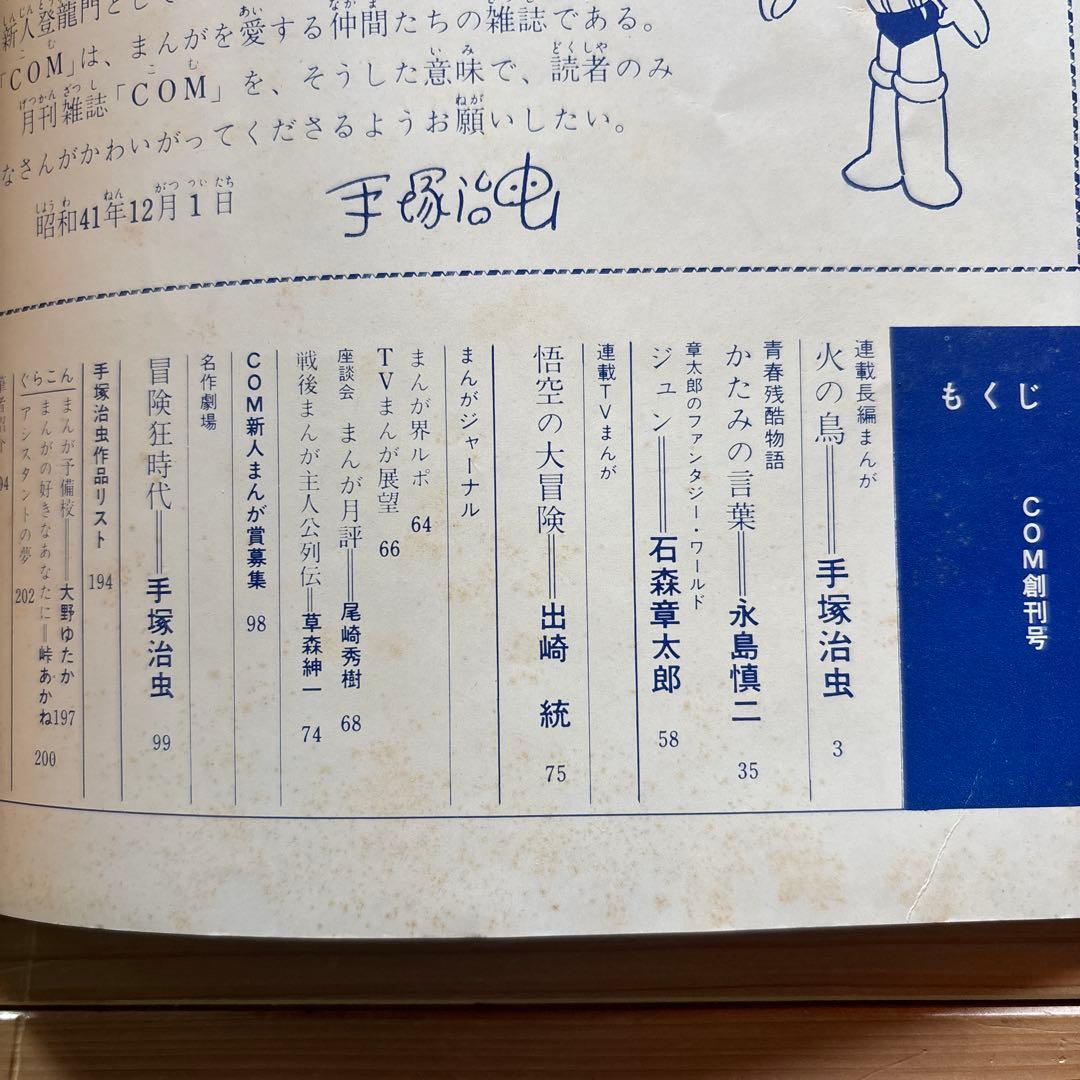 新人登龍門として
「COM」は、まんがを愛する仲間たちの雑誌である。
月刊雑誌「COM」を、そうした意味で、読者のみ
なさんがかわいがってくださるようお願いしたい。
昭和41年12月1日
手塚治虫
もくじ
COM創刊号
連載長編まんが
火の鳥 手塚治虫 3
青春残酷物語
かたみの言葉 永島慎二 35
章太郎のファンタジー・ワールド
ジュン 石森章太郎 58
連載TVまんが
悟空の大冒険 出崎 統 75
まんがジャーナル
まんが界ルポ 64
TVまんが展望 66
座談会 まんが月評 尾崎秀樹 68
戦後まんが主人公列伝 草森紳一 74
COM新人まんが賞募集 98
名作劇場
冒険狂時代 手塚治虫 99
手塚治虫作品リスト 194
ぐらこん
まんが予備校 大野ゆたか 197
まんがの好きなあなたに 峠あかね 200
アシスタントの夢 202